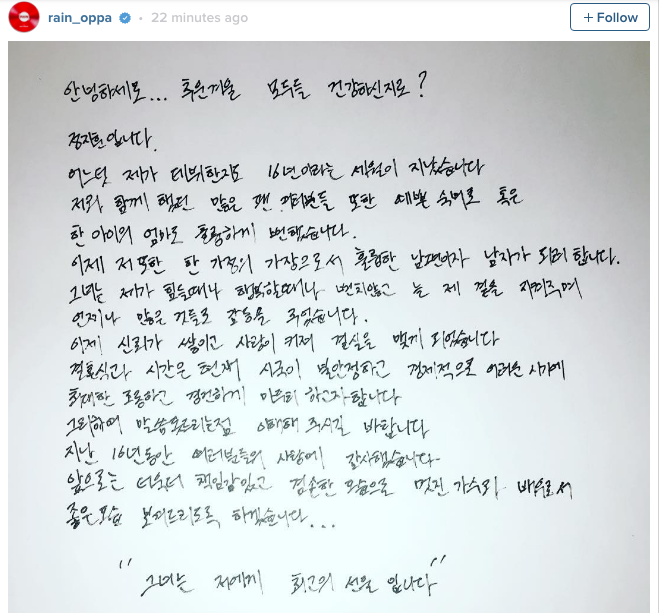 rain_oppa • 22 minutes ago + Follow
안녕하세요... 추운겨울 모두들 건강하신지요?
정지훈입니다.
어느덧 제가 데뷔한지도 16년이라는 세월이 지났습니다
저와 함께 했던 많은 팬 여러분들 또한 예쁜 숙녀로 혹은
한 아이의 엄마로 훌륭하게 변했습니다.
이제 저 또한 한 가정의 가장으로서 훌륭한 남편이자 남자가 되려 합니다.
그녀는 제가 힘들때나 행복할때나 변치않고 늘 제 곁을 지켜주며
언제나 많은 것들로 감동을 주었습니다.
이제 신뢰가 쌓이고 사랑이 커져 결실을 맺게 되었습니다
결혼식과 시간은 현재 시국이 불안정하고 경제적으로 어려운 시기에
최대한 조용하고 경건하게 마무리 하고자 합니다
그리하여 말씀못드리는점 이해해 주시길 바랍니다
지난 16년동안 여러분들의 사랑에 감사했습니다
앞으로는 더욱더 책임감있고 겸손한 모습으로 멋진 가수와 배우로서
좋은모습 보여드리도록 하겠습니다...
"그녀는 저에게 최고의 선물 입니다"